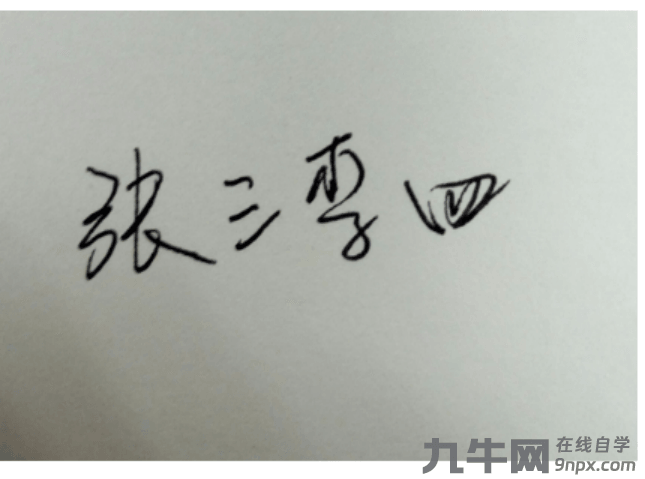 张三李四
九牛网 在线自学
9npx.com